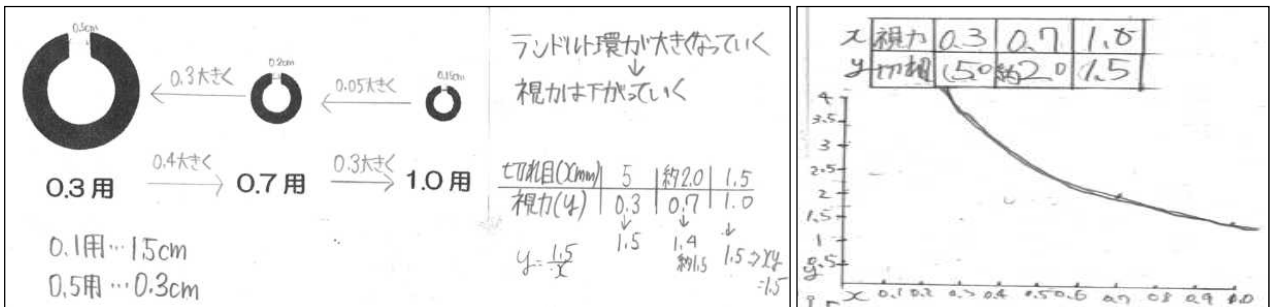 0.5cm
0.2cm
0.15cm
0.3大きく
0.05大きく
0.4大きく
0.3大きく
0.3用
0.7用
1.0用
0.1用…1.5cm
0.5用…0.3cm
ランドルト環が大きくなっていく
↓
視力は下がっていく
切れ目(xmm) 5 約2.0 1.5
視力(y) 0.3 0.7 1.0
↓ ↓ ↓
1.5 1.4 1.5⇒xy
約1.5 =1.5
y=1.5/x
x 視力 0.3 0.7 1.0
y 切れ目 5.0 約2.0 1.5
4
3.5
3
2.5
2
1.5
1
0.5
y
x 0.1 0.2 0.3 0.4 0.5 0.6 0.7 0.8 0.9 1.0